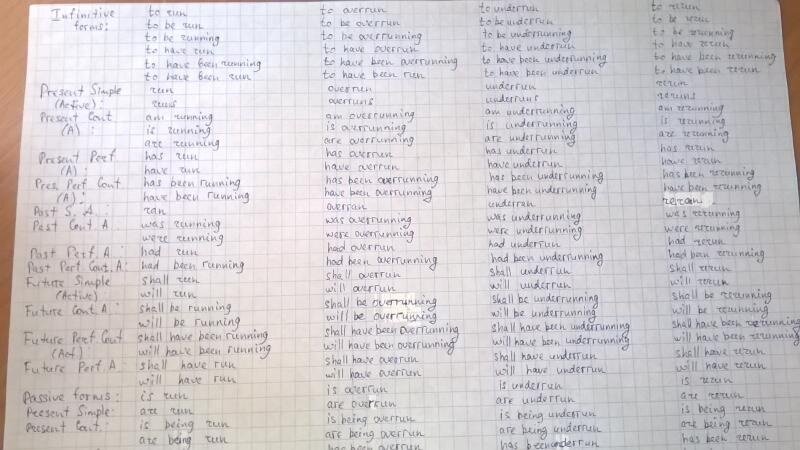 Infinitive to run to overrun to underrun to rerun
forms: to be run to be overrun to be underrun to be rerun
to be running to be overrunning to be underrunning to be rerunning
to have run to have overrun to have underrun to have rerun
to have been running to have been overrunning to have been underrunning to have been rerunning
to have been run to have been run to have been underrun to have been rerun
Present Simple run overrun underrun rerun
(Active): runs overruns underruns reruns
Present Cont am running am overrunning am underrunning am rerunning
(A): is running is overrunning is underrunning is rerunning
are running are overrunning are underrunning are rerunning
Present Perf. has run has overrun has underrun has rerun
(A): have run have overrun have underrun have rerun
Pres. Perf Cont. has been running has been overrunning has been underrunning has been rerunning
(A): have been running have been overrunning have been underrunning have been rerunning
Past S. A.: ran overran underran reran
Past Cont A.: was running was overrunning was underrunning was rerunning
were running were overrunning were underrunning were rerunning
Past Perf. A: had run had overrun had underrun had rerun
Past Perf Cont. A: had been running had been overrunning had been underrunning had been rerunning
Future Simple shall run shall overrun shall underrun shall rerun
(Active): will run will overrun will underrun will rerun
Future Cont. A.: shall be running shall be overrunning shall be underrunning shall be rerunning
will be running will be overrunning will be underrunning will be rerunning
Future Perf. Cont shall have been running shall have been overrunning shall have been underrunning shall have been rerunning
(Act): will have been running will have been overrunning will have been underrunning will have been rerunning
Future Perf. A: shall have run shall have overrun shall have underrun shall have rerun
will have run will have overrun will have underrun will have rerun
Passive forms: is run is overrun is underrun is rerun
Present Simple: are run are overrun are underrun are rerun
Present Cont.: is being run is being overrun is being underrun is being rerun
are being run are being overrun are being underrun are being rerun
has been overrun has been underrun has been rerun